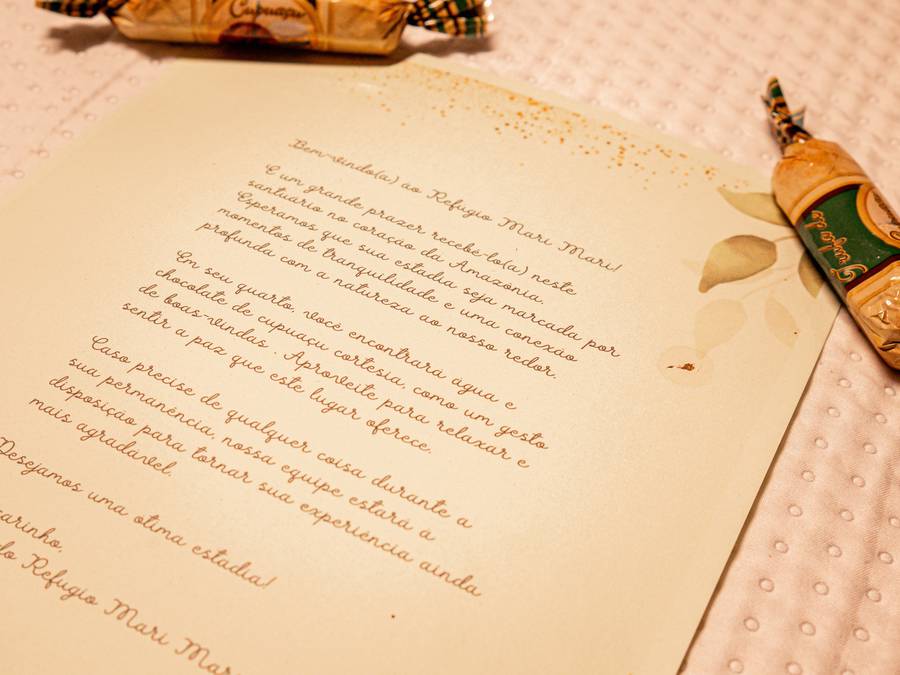 Cupuaçu
Bem-vindo(a) ao Refúgio Mari Mari!
É um grande prazer recebê-lo(a) neste
santuário no coração da Amazônia.
Esperamos que sua estadia seja marcada por
momentos de tranquilidade e uma conexão
profunda com a natureza ao nosso redor.
Em seu quarto, você encontrará água e
chocolate de cupuaçu cortesia, como um gesto
de boas-vindas. Aproveite para relaxar e
sentir a paz que este lugar oferece.
Caso precise de qualquer coisa durante a
sua permanência, nossa equipe estará à
disposição para tornar sua experiência ainda
mais agradável.
Desejamos uma ótima estadia!
carinho,
do Refúgio Mari Mar